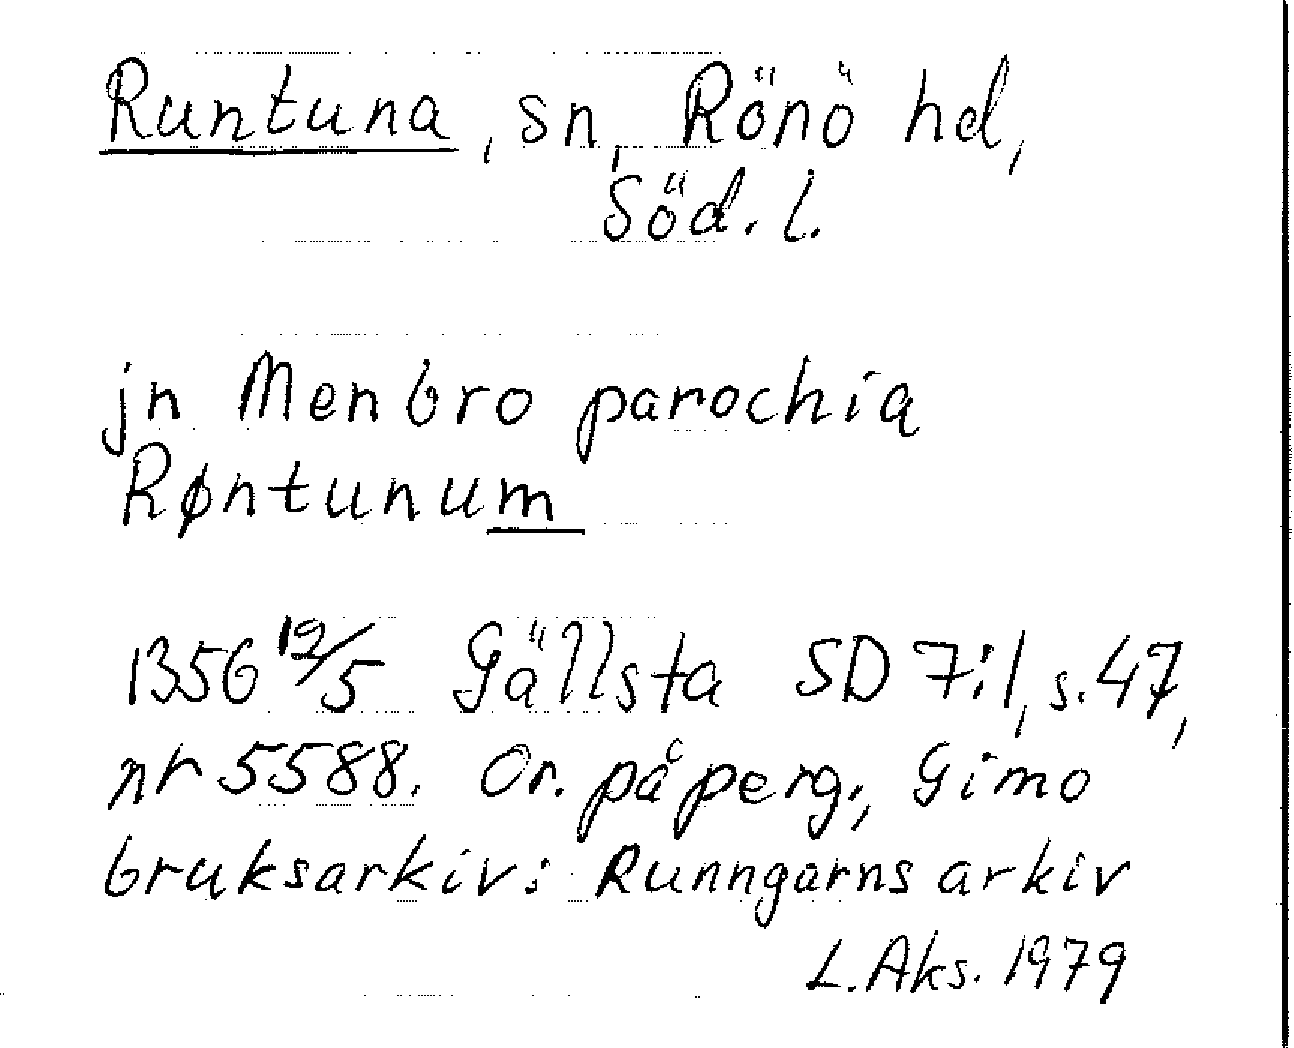 Runtuna, sn, Rönö hd,
Söd. l.
jn Menbro parochia
Røntunum
1356 12/5 Gällsta SD 7:1, s. 47,
nr 5588. Or. på perg., Gimo
bruksarkiv: Runngarns arkiv
L. Aks. 1979